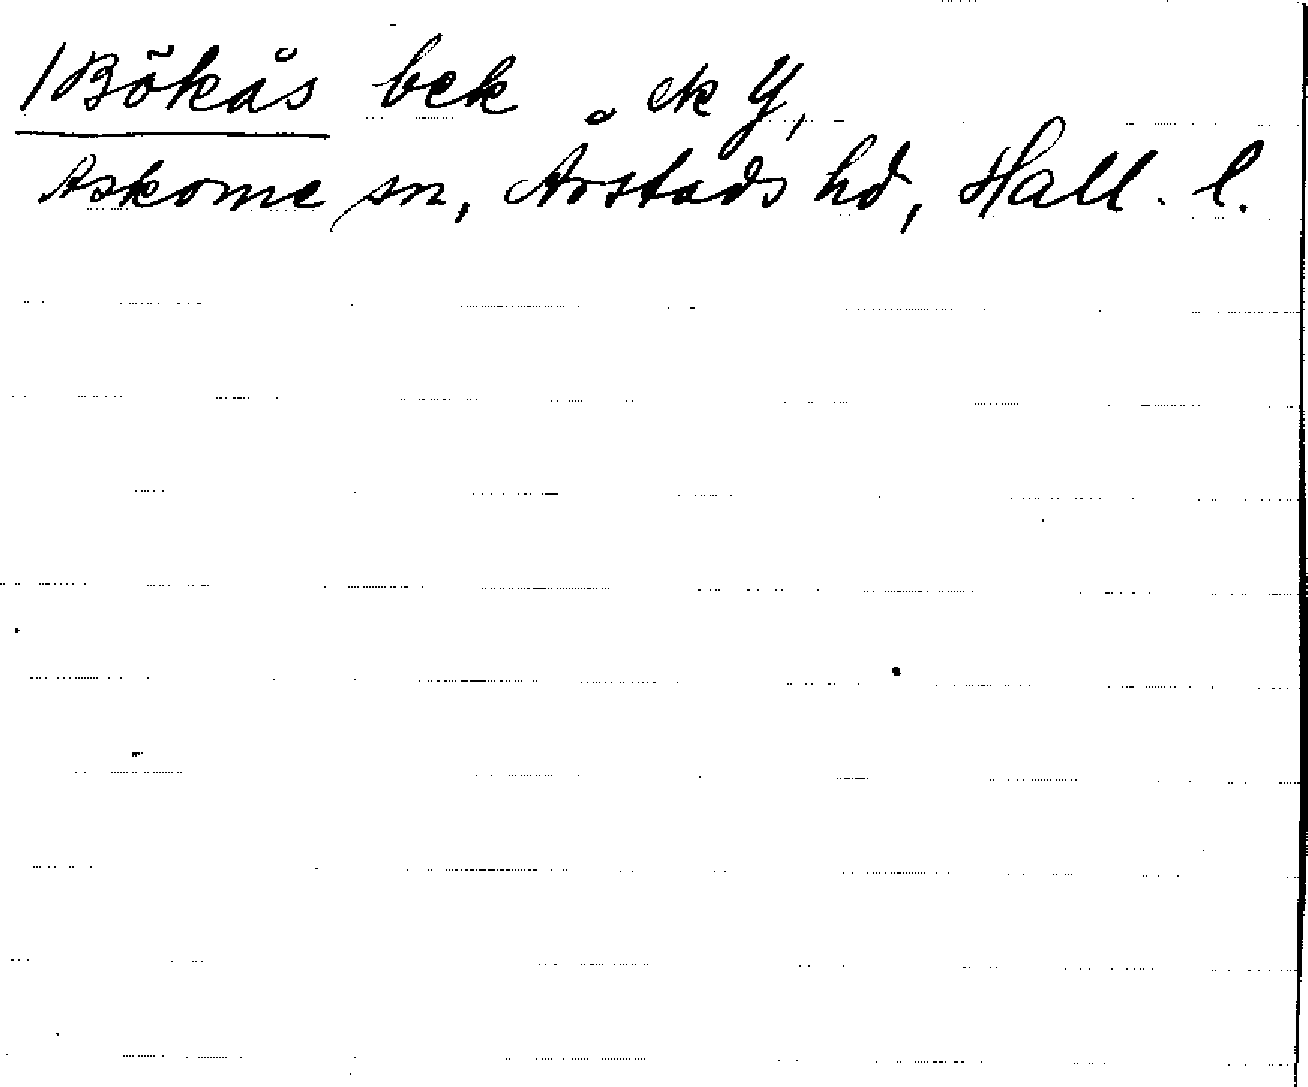 /Bökås bek ek Y,
Askome sn, Årstads hd, Hall. l.